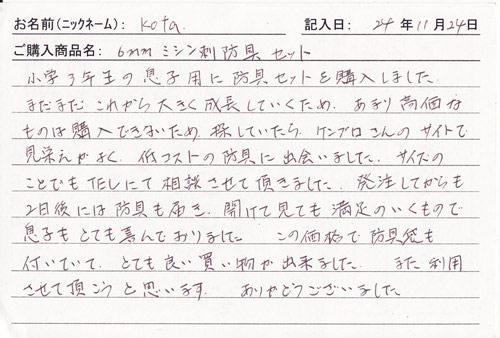 お名前(ニックネーム): kota. 記入日: 24年11月24日
ご購入商品名: 6mm ミシン刺防具セット
小学3年生の息子用に防具セットを購入しました.
まだまだこれから大きく成長していくため、あまり高価な
ものは購入できないため、探していたら、ケンブロさんのサイトで
見栄えがよく、低コストの防具に出会いました. サイズの
ことでもTELにて相談させて頂きました. 発注してからも
2日後には防具も届き、開けて見ても満足のいくもので
息子もとても喜んでおりました この価格で防具袋も
付いていて、とても良い買い物が出来ました. また利用
させて頂こうと思います. ありがとうございました